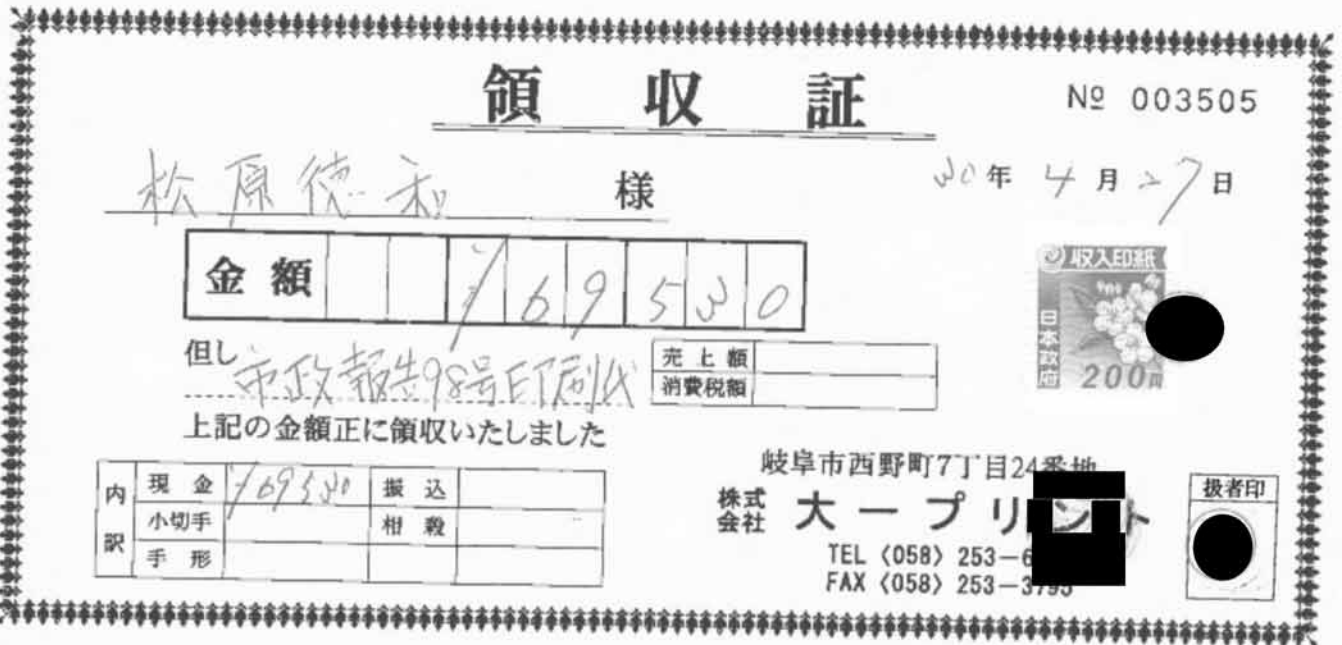 領収証
№ 003505
松原徳和 様
30年 4月 27日
金額 ¥69530
収入印紙
日本政府
200円
但し 市政報告98号印刷代
売上額
消費税額
上記の金額正に領収いたしました
内訳
現金 ¥69530 振込
小切手 相殺
手形
岐阜市西野町7丁目24番地
株式会社 大一プリント
TEL (058) 253-6
FAX (058) 253-3795
扱者印